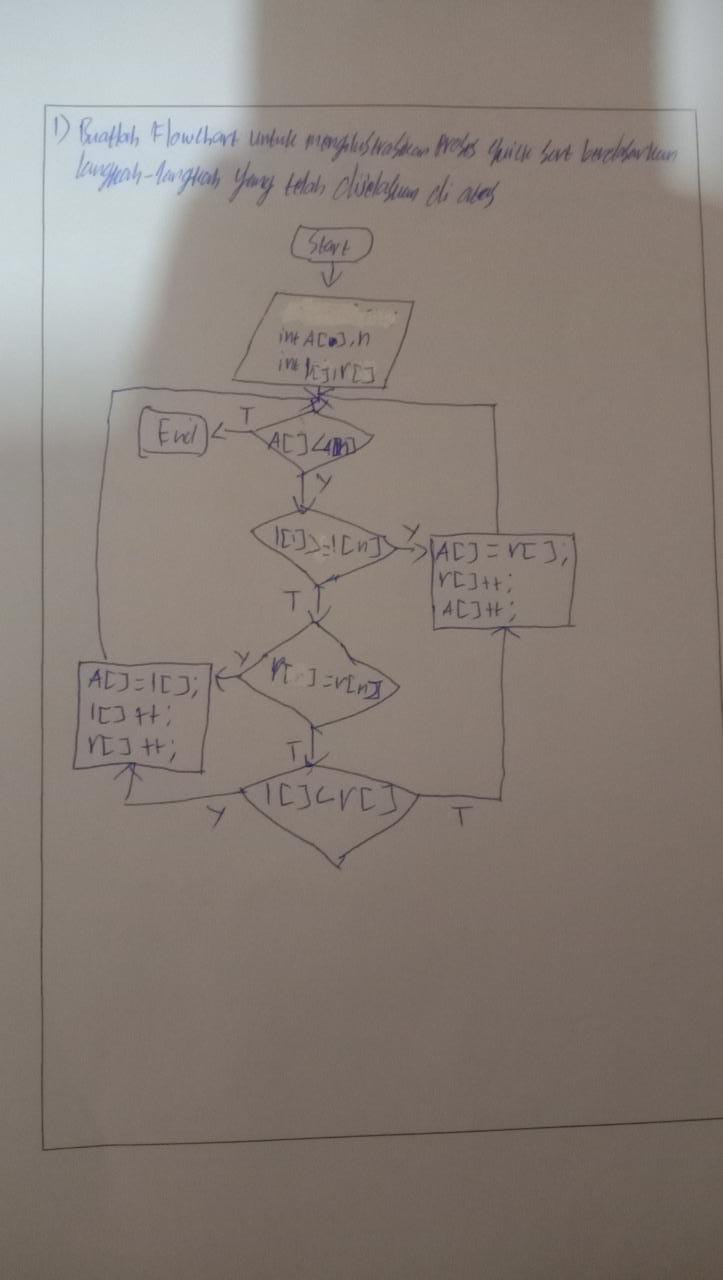 1) Buatlah Flowchart untuk mengilustrasikan Proses Quick Sort berdasarkan
langkah-langkah yang telah dijelaskan di atas
Start
int A[], n
int l[], r[]
T
End
A[] <
Y
l[] >= l[n]
Y
A[] = r[];
r[]++;
A[]++;
T
Y
r[] = r[n]
A[] = l[];
l[]++;
r[]++;
T
l[] < r[]
Y
T